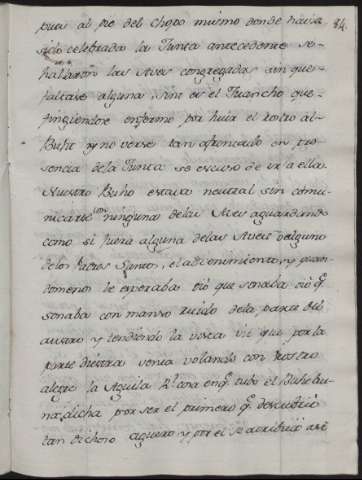 84.
pues al pie del Chopo mismo donde havia
sido celebrada la Junta antecedente se
hallaron las Aves congregadas sin que
faltase alguna sino es el Juancho que
fingiendose enfermo por huir el rostro al
Buho y no verse tan afrontado en pre
sencia de la Junta se escuso de ir a ella
Nuestro Buho estavo neutral sin comu
nicarse con ninguna de las Aves aguardando
como si fuera alguna de las Aves o alguno
de los Padres Santos, el advenimiento, y quan
to menos le esperaba vió que sonaba
sonaba con manso ruido de la parte del
austro y tendiendo la vista vió que por la
parte diestra venia volando con rostro
alegre la Aguila Rl. cosa en q. tubo el Buho bu
na dicha por ser el primero q. descubrió
tan dichoso aguero y por el se atribuió assi